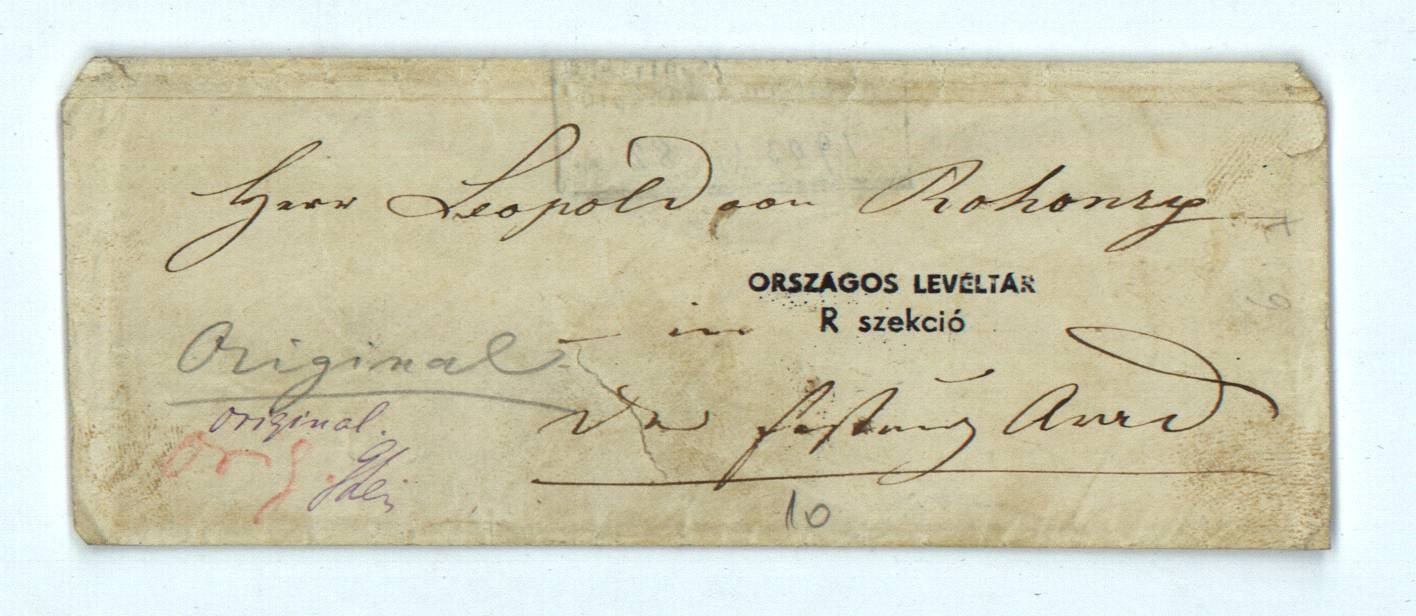 Herr Leopold von Rohonczy
ORSZÁGOS LEVÉLTÁR
R szekció
in
Original
der Festung Arad
original.
Orig.
10